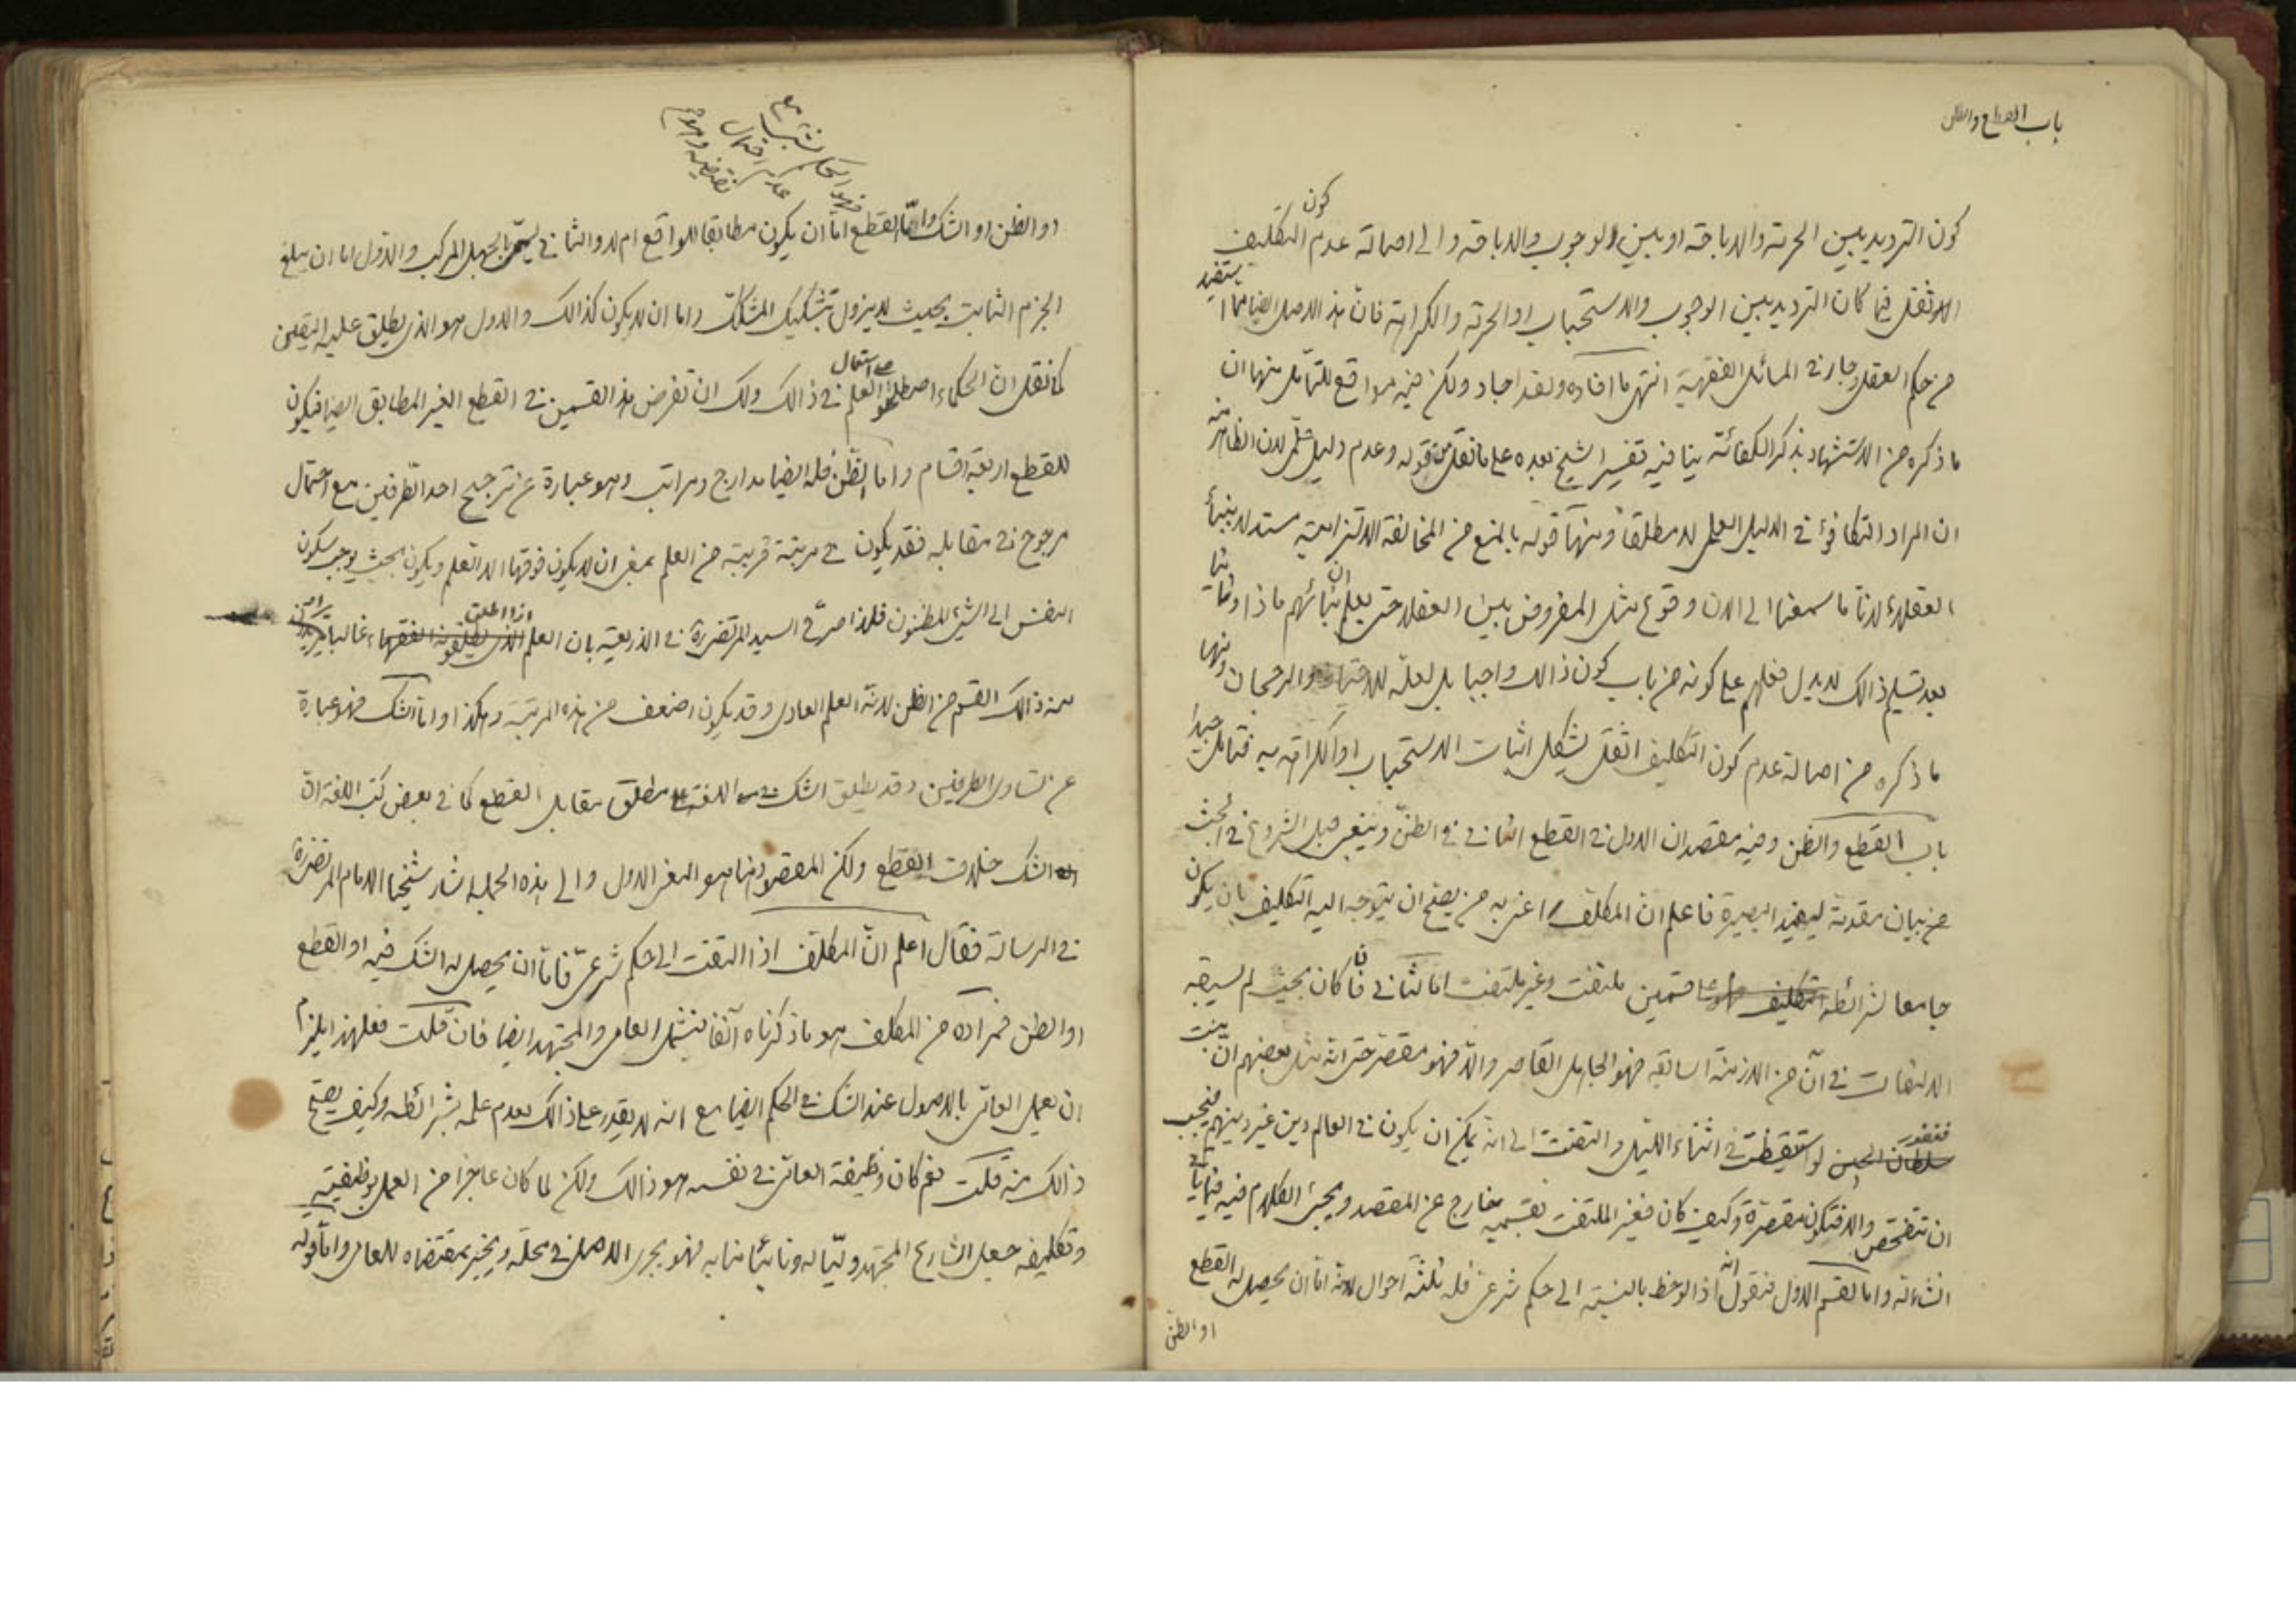 باب القطع والظن
كون الترديد بين الحرمة والاباحة او بين الوجوب والاباحة والى اصالة عدم كون التكليف
الاثقل فيما كان الترديد بين الوجوب والاستحباب او الحرمة والكراهة فان هذا الاصل ايضا مما يستفيد
من حكم العقل وجار في المسائل الفقهية انتهى ما افاده ولقد اجاد ولكن فيه مواقع للتأمل منها ان
ما ذكره من الاستشهاد بذكر الكفائة ينافيه تفسير الشيخ بعده على ما نقل من قوله وعدم دليل علمى لان الظاهر منه
ان المراد التكافوء في الدليل العلمى لا مطلقا ومنها قوله بالمنع من المخالفة الالتزامية مستدلا ببناء
العقلاء لانا ما سمعنا الى الان وقوع مثل المفروض بين العقلاء حتى يعلم ان بنائهم ماذا وثانيا
بعد تسليم ذالك لا يدل فعلهم على كونه من باب كون ذالك واجبا بل لعله للاحتياط والرجحان ومنها
ما ذكره من اصالة عدم كون التكليف اثقل يشكل اثبات الاستحباب او الكراهة به فتامل جيدا
باب القطع والظن وفيه مقصدان الاول في القطع الثاني في الظن وينبغي قبل الشروع في البحث
من بيان مقدمة ليفيد البصيرة فاعلم ان المكلف اعنى به من يصلح ان يتوجه اليه التكليف بان يكون
جامعا لشرائطه على قسمين ملتفت وغير ملتفت اما الثاني فان كان بحيث لم يسبقه
الالتفات في آن من الازمنة السابقة فهو الجاهل القاصر والا فهو مقصر حتى انه مثل بعضهم ان بنت
فغفور الصين لو استيقظت في اثناء الليل والتفتت الى انه يمكن ان يكون في العالم دين غير دينهم فيجب
ان تتفحص والا فتكون مقصرة وكيف كان فغير الملتفت بقسميه خارج عن المقصد ويجئ الكلام فيه فيما ياتى
انشاءالله واما القسم الاول فنقول انه اذا لوحظ بالنسبة الى حكم شرعى فله ثلثة احوال لانه اما ان يحصل له القطع
او الظن
فهو الحكم بشئ مع
عدم احتمال
نقيضه وهو
او الظن او الشك واما القطع اما ان يكون مطابقا للواقع ام لا والثاني يسمى بالجهل المركب والاول اما ان يبلغ
الجزم الثابت بحيث لا يزول بتشكيك المشكك واما ان لا يكون كذالك والاول هو الذى يطلق عليه اليقين
كما نقل ان الحكماء اصطلحوا على استعمال العلم في ذالك ولك ان تفرض هذا القسمين في القطع الغير المطابق ايضا فيكون
للقطع اربعة اقسام واما الظن فله ايضا مدارج ومراتب وهو عبارة عن ترجيح احد الطرفين مع احتمال
مرجوح في مقابله فقد يكون في مرتبة قريبة من العلم بمعنى ان لا يكون فوقها الا العلم ويكون بحيث يوجب سكون
النفس الى الشئ المظنون فلذا صرّح السيد المرتضى ره في الذريعة بان العلم اذا اطلق الذى يطلقونه الفقهاء غالبا يراد
منه ذالك القسم من الظن لانه العلم العادى وقد يكون اضعف من هذه المرتبة وهكذا واما الشك فهو عبارة
عن تساوى الطرفين وقد يطلق الشك في اللغة على مطلق مقابل القطع كما في بعض كتب اللغة ان
الشك خلاف القطع ولكن المقصود هنا هو المعنى الاول والى هذه الجملة اشار شيخنا الامام المرتضى ره
في الرسالة فقال اعلم ان المكلف اذا التفت الى حكم شرعى فاما ان يحصل له الشك فيه او القطع
او الظن فمراده من المكلف هو ما ذكرناه آنفا فيشمل العامى والمجتهد ايضا فان قلت فعلى هذا يلزم
ان يعمل العامى بالاصول عند الشك في الحكم ايضا مع انه لا يقدر على ذالك لعدم علمه بشرائطه وكيف يصح
ذالك منه قلت نعم كان وظيفة العامى في نفسه هو ذالك ولكن لما كان عاجزا من العمل بوظيفته
وتكليفه جعل الشارع المجتهد وليا له ونائبا منابه فهو يجرى الاصل في محله ويخبر بمقتضاه للعامى واما قوله